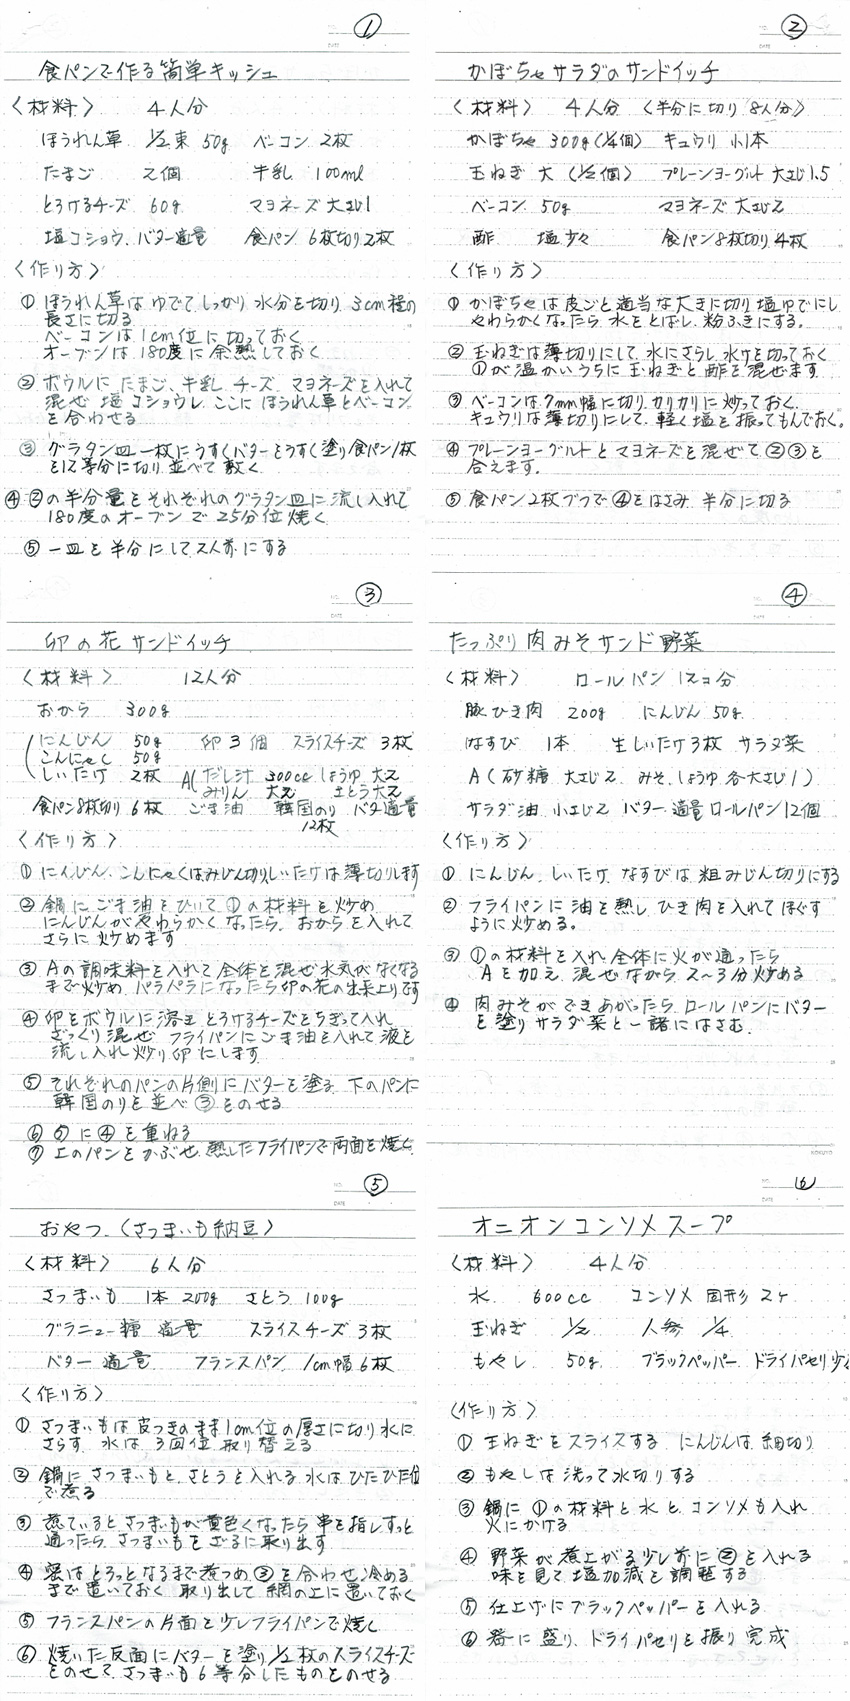 ①
食パンで作る簡単キッシュ
〈材料〉 4人分
ほうれん草 1/2束 50g ベーコン 2枚
たまご 2個 牛乳 100ml
とろけるチーズ 60g マヨネーズ 大さじ1
塩コショウ バター適量 食パン 6枚切り2枚
〈作り方〉
① ほうれん草はゆでてしっかり水分を切り 3cm程の
長さに切る
ベーコンは1cm位に切っておく
オーブンは180度に余熱しておく
② ボウルに たまご、牛乳 チーズ マヨネーズを入れて
混ぜ 塩コショウし ここに ほうれん草とベーコン
を合わせる
③ グラタン皿一枚にうすくバターをうすく塗り食パン1枚
を12等分に切り並べて敷く
④ ②の半分量をそれぞれのグラタン皿に流し入れて
180度のオーブンで25分位焼く
⑤ 一皿を半分にして2人前にする
②
NO.
DATE
かぼちゃサラダのサンドイッチ
〈材料〉 4人分 〈半分に切り 8人分〉
かぼちゃ 300g(1/4個) キュウリ 小1本
玉ねぎ 大(1/2個) プレーンヨーグルト 大さじ1.5
ベーコン 50g マヨネーズ 大さじ2
酢 塩 少々 食パン8枚切り 4枚
〈作り方〉
① かぼちゃは皮ごと適当な大きに切り塩ゆでにし
やわらかくなったら 水をとばし 粉ふきにする。
② 玉ねぎは薄切りにして 水にさらし 水けを切っておく
①が温かいうちに 玉ねぎと酢を混ぜます
③ ベーコンは7mm幅に切りカリカリに炒っておく
キュウリは薄切りにして 軽く塩を振ってもんでおく。
④ プレーンヨーグルトとマヨネーズを混ぜて②③を
合えます.
⑤ 食パン2枚づつで④をはさみ 半分に切る
③
NO.
DATE
卯の花サンドイッチ
〈材料〉 12人分
おから 300g
にんじん 50g 卵3個 スライスチーズ 3枚
こんにゃく 50g
しいたけ 2枚 A(だし汁 300cc しょうゆ 大2
みりん 大2 さとう大2
食パン8枚切り 6枚 ごま油 韓国のり バタ適量
12枚
〈作り方〉
① にんじん、こんにゃくはみじん切り、しいたけは薄切りします
② 鍋にごま油をひいて①の材料を炒め
にんじんがやわらかくなったら、おからを入れて
さらに炒めます
③ Aの調味料を入れて全体を混ぜ水気がなくなる
まで炒め パラパラになったら卯の花の出来上りです
④ 卵をボウルに溶き とろけるチーズをちぎって入れ
ざっくり混ぜ フライパンにごま油を入れて液を
流し入れ 炒り卵にします
⑤ それぞれのパンの片側にバターを塗る 下のパンに
韓国のりを並べ③をのせる
⑥ ⑤に④を重ねる
⑦ 上のパンをかぶせ、熱したフライパンで両面を焼く
④
NO.
DATE
たっぷり肉みそサンド野菜
〈材料〉 ロールパン 12コ分
豚ひき肉 200g にんじん 50g
なすび 1本 生しいたけ3枚 サラダ菜
A(砂糖 大さじ2 みそ、しょうゆ 各大さじ1)
サラダ油 小さじ2 バター 適量 ロールパン12個
〈作り方〉
① にんじん、しいたけ、なすびは 粗みじん切りにする
② フライパンに油を熱し ひき肉を入れてほぐす
ように炒める。
③ ①の材料を入れ全体に火が通ったら
Aを加え、混ぜながら2〜3分炒める
④ 肉みそができあがったら ロールパンにバター
を塗りサラダ菜と一緒にはさむ.
KOKUYO
⑤
NO.
DATE
おやつ 〈さつまいも納豆〉
〈材料〉 6人分
さつまいも 1本 200g さとう 100g
グラニュー糖 適量 スライスチーズ 3枚
バター 適量 フランスパン 1cm幅6枚
〈作り方〉
① さつまいもは皮つきのまま1cm位の厚さに切り水に
さらす 水は 3回位 取り替える
② 鍋にさつまいもと、さとうを入れる 水はひたひた位
で煮る
③ 煮ているとさつまいもが黄色くなったら串を指しすっと
通ったら さつまいもをざるに取り出す
④ 蜜はとろっとなるまで煮つめ③を合わせ冷める
まで置いておく 取り出して網の上に置いておく
⑤ フランスパンの片面を少しフライパンで焼く
⑥ 焼いた反面にバターを塗り1/2枚のスライスチーズ
をのせて、さつまいも6等分したものをのせる
⑥
NO.
DATE
オニオンコンソメスープ
〈材料〉 4人分
水 600cc コンソメ 固形 2ケ
玉ねぎ 1/2 人参 1/4
もやし 50g ブラックペッパー ドライパセリ少
〈作り方〉
① 玉ねぎをスライスする にんじんは 細切り
② もやしは洗って水切りする
③ 鍋に①の材料と水と、コンソメも入れ
火にかける
④ 野菜が煮上がる少し前に②を入れる
味を見て塩加減を調整する
⑤ 仕上げにブラックペッパーを入れる
⑥ 器に盛り、ドライパセリを振り完成